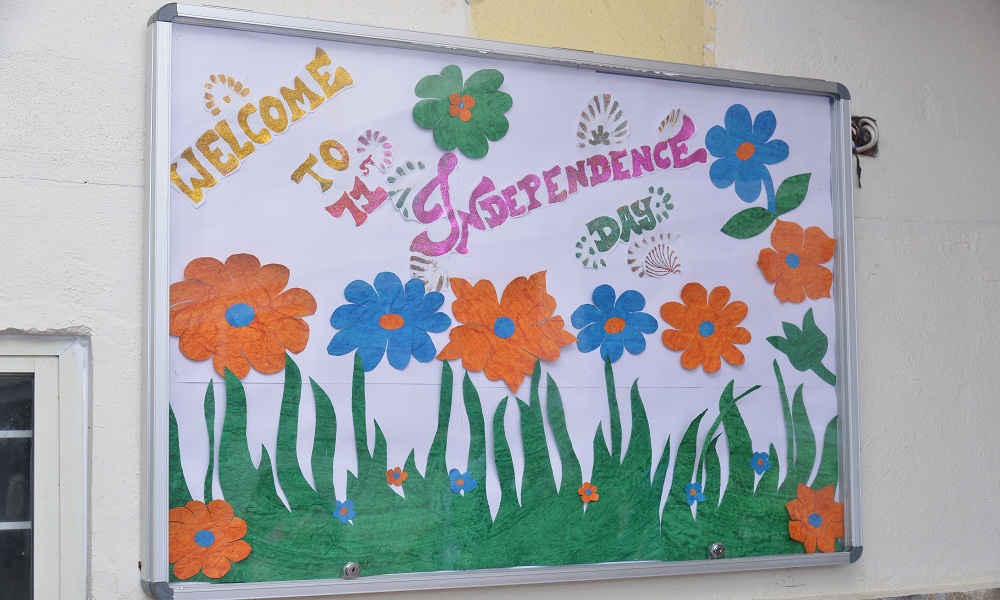 WELCOME
TO
71st
INDEPENDENCE
DAY